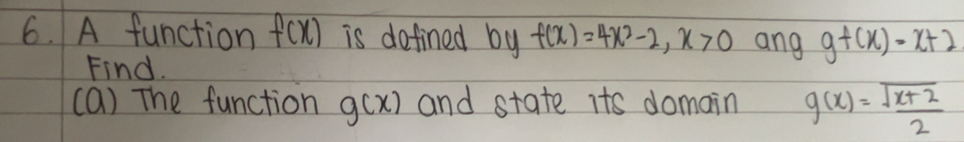 6. A function f(x) is defined by f(x)=4x²-2, x>0 ang gf(x)=x+2.
Find.
(a) The function g(x) and state its domain g(x)=√(x+2)/2